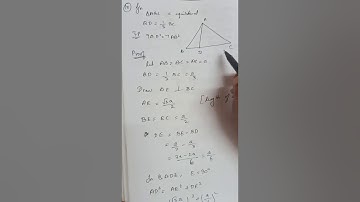 In
ΔABC is equilateral
BD = 1/3 BC
9AD² = 7AB²
Proof
A
B D C
Let AB = BC = AC = a
BD = 1/3 BC = a/3
Draw AE ⊥ BC
AE = √3a/2
BE = EC = a/2
DE = BE - BD
= a/2 - a/3
= 3a-2a/6 = a/6
In ΔADE, E = 90°
AD² = AE² + DE²